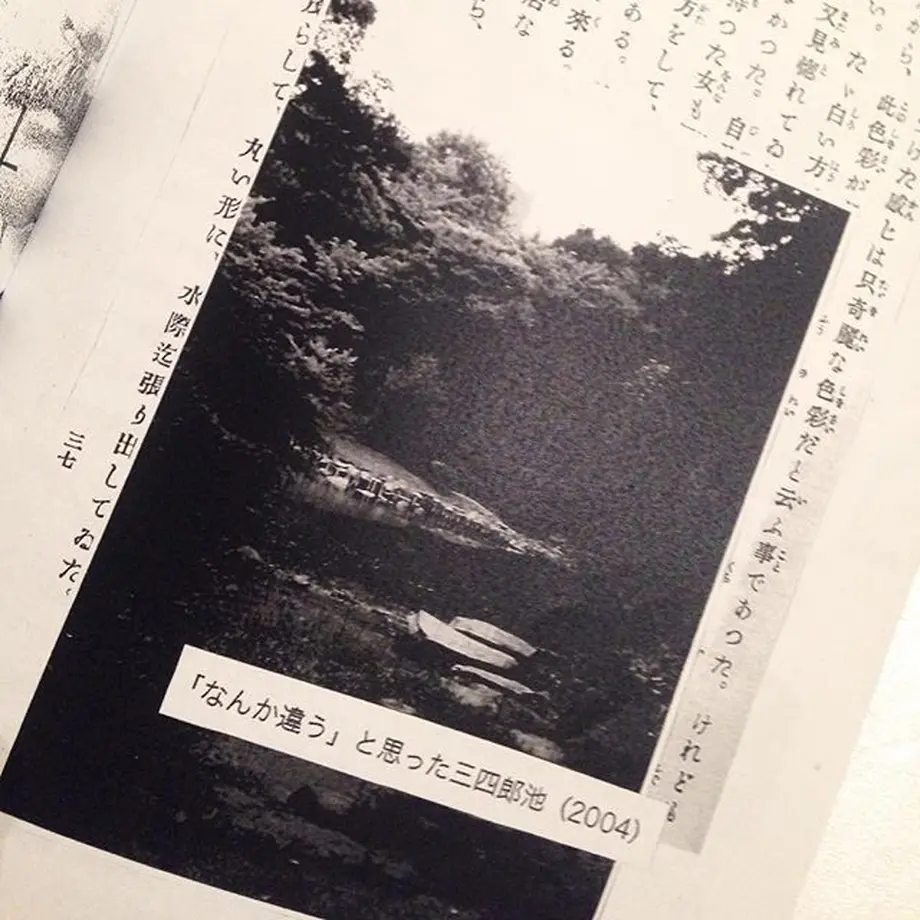 けた感じは只奇麗な色彩だと云ふ事であつた。けれども
がら、此色彩が
い。たゞ白い方
又見惚れてゐ
かつた。自
持つた女も
方をして、
ある。
來る。
な
ら、
茂らして、丸い形に、水際迄張り出してゐた。
三七
「なんか違う」と思った三四郎池（2004）